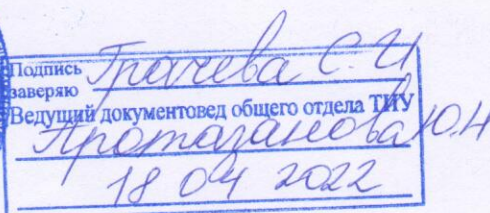 Подпись Грачева С.И
заверяю
Ведущий документовед общего отдела ТИУ
Протазанова Ю.Н
18 04 2022